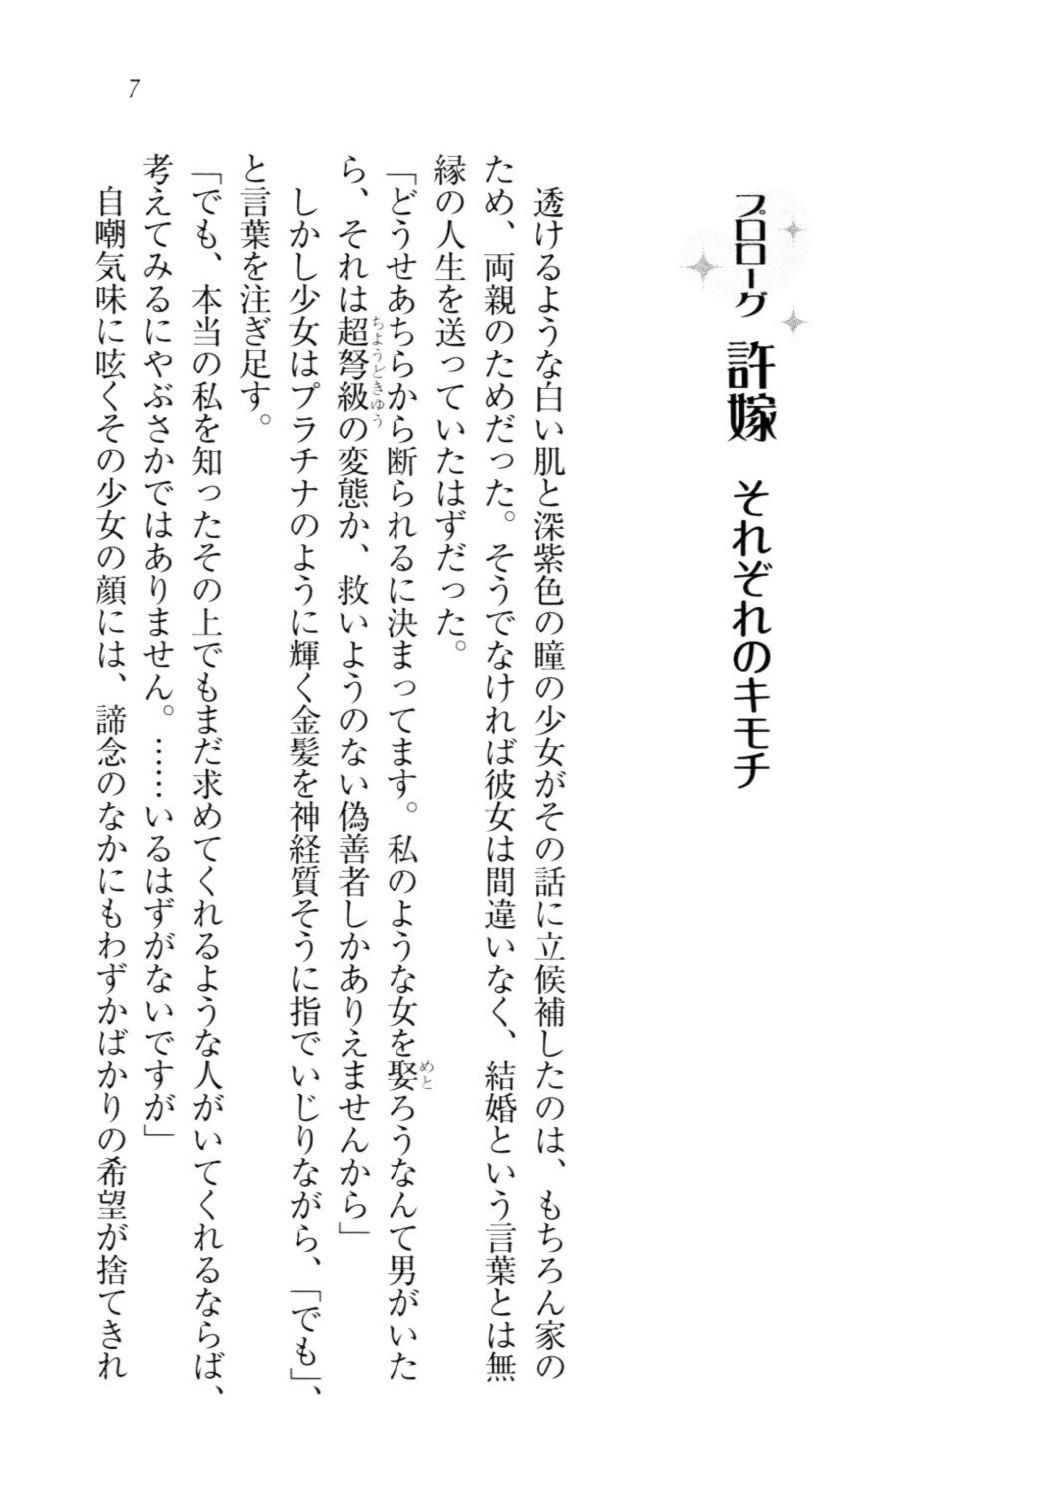 7
プロローグ 許嫁 それぞれのキモチ
透けるような白い肌と深紫色の瞳の少女がその話に立候補したのは、もちろん家の
ため、両親のためだった。そうでなければ彼女は間違いなく、結婚という言葉とは無
縁の人生を送っていたはずだった。
「どうせあちらから断られるに決まってます。私のような女を娶ろうなんて男がいた
めと
ら、それは超弩級の変態か、救いようのない偽善者しかありえませんから」
ちょうどきゅう
しかし少女はプラチナのように輝く金髪を神経質そうに指でいじりながら、「でも」、
と言葉を注ぎ足す。
「でも、本当の私を知ったその上でもまだ求めてくれるような人がいてくれるならば、
考えてみるにやぶさかではありません。……いるはずがないですが」
自嘲気味に呟くその少女の顔には、諦念のなかにもわずかばかりの希望が捨てきれ